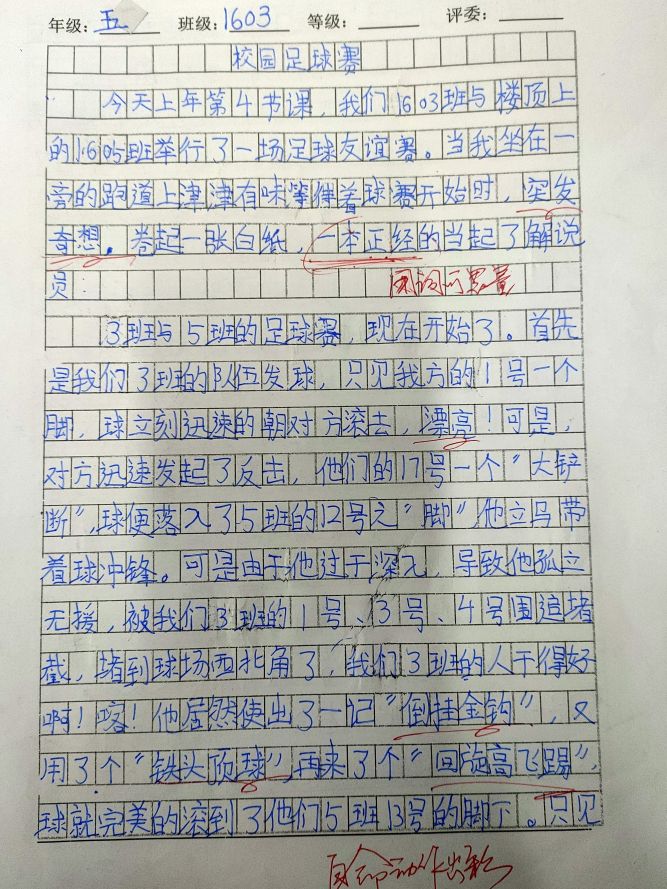 年级：五 班级：1603 等级： 评委：
校园足球赛
今天上年第4节课，我们1603班与楼顶上
的1605班举行了一场足球友谊赛。当我坐在一
旁的跑道上津津有味等待着球赛开始时，突发
奇想。卷起一张白纸，一本正经的当起了解说
员
用词可
3班与5班的足球赛，现在开始了。首先
是我们3班的队伍发球，只见我方的1号一个
脚，球立刻迅速的朝对方滚去，漂亮！可是，
对方迅速发起了反击，他们的17号一个“大铲
断”，球便落入了5班的12号之“脚”，他立马带
着球冲锋。可是由于他过于深入，导致他孤立
无援，被我们3班的1号、3号、4号围追堵
截，堵到球场西北角了，我们3班的人干得好
啊！喀！他居然使出了一记“倒挂金钩”，又
用了个“铁头顶球”，再来了个“回旋高飞踢”，
球就完美的滚到了他们5班13号的脚下。只见
动作